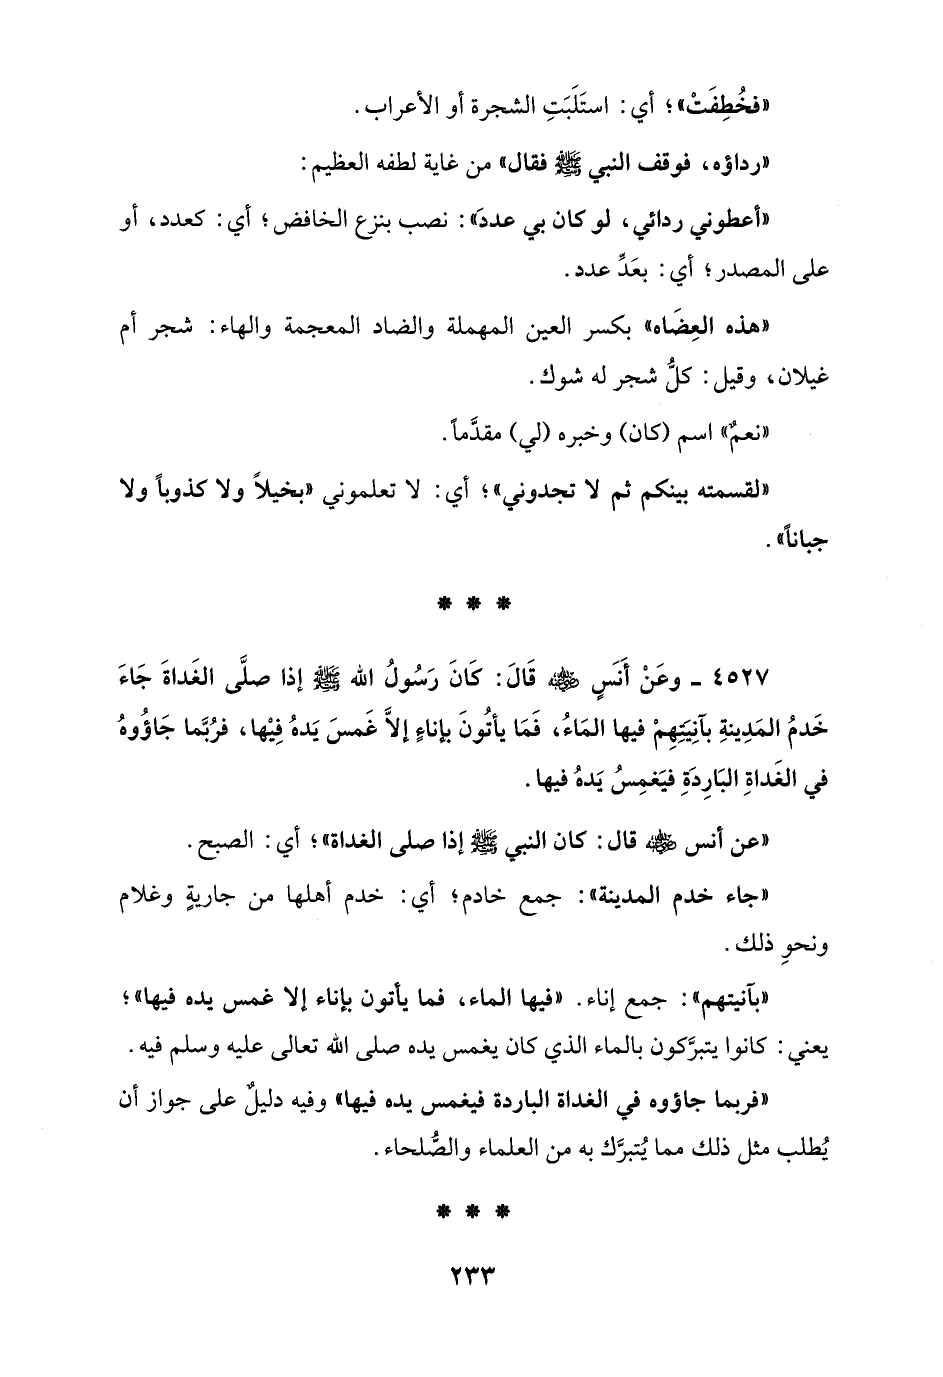 «فخُطِفَتْ»؛ أي: استَلَبَتِ الشجرة أو الأعراب.
«رداؤه، فوقف النبي ﷺ فقال» من غاية لطفه العظيم:
«أعطوني ردائي، لو كان بي عددَ»: نصب بنزع الخافض؛ أي: كعدد، أو
على المصدر؛ أي: بعَدِّ عدد.
«هذه العِضَاه» بكسر العين المهملة والضاد المعجمة والهاء: شجر أم
غيلان، وقيل: كلُّ شجر له شوك.
«نعمٌ» اسم (كان) وخبره (لي) مقدَّماً.
«لقسمته بينكم ثم لا تجدوني»؛ أي: لا تعلموني «بخيلاً ولا كذوباً ولا
جباناً».
* * *
٤٥٢٧ ـ وعَنْ أَنَسٍ ﷺ قَالَ: كَانَ رَسُولُ الله ﷺ إذا صلَّى الغَداةَ جَاءَ
خَدمُ المَدِينةِ بآنِيَتِهِمْ فيها المَاءُ، فَمَا يأتُونَ بإناءٍ إلاَّ غَمسَ يَدهُ فِيْها، فرُبَّما جَاؤُوهُ
في الغَداةِ البَارِدَةِ فيَغمِسُ يَدهُ فيها.
«عن أنس رضي الله عنه قال: كان النبي ﷺ إذا صلى الغداة»؛ أي: الصبح.
«جاء خدم المدينة»: جمع خادم؛ أي: خدم أهلها من جاريةٍ وغلام
ونحوِ ذلك.
«بآنيتهم»: جمع إناء. «فيها الماء، فما يأتون بإناء إلا غمس يده فيها»؛
يعني: كانوا يتبرَّكون بالماء الذي كان يغمس يده صلى الله تعالى عليه وسلم فيه.
«فربما جاؤوه في الغداة الباردة فيغمس يده فيها» وفيه دليلٌ على جواز أن
يُطلب مثل ذلك مما يُتبرَّك به من العلماء والصُّلحاء.
* * *
٢٣٣